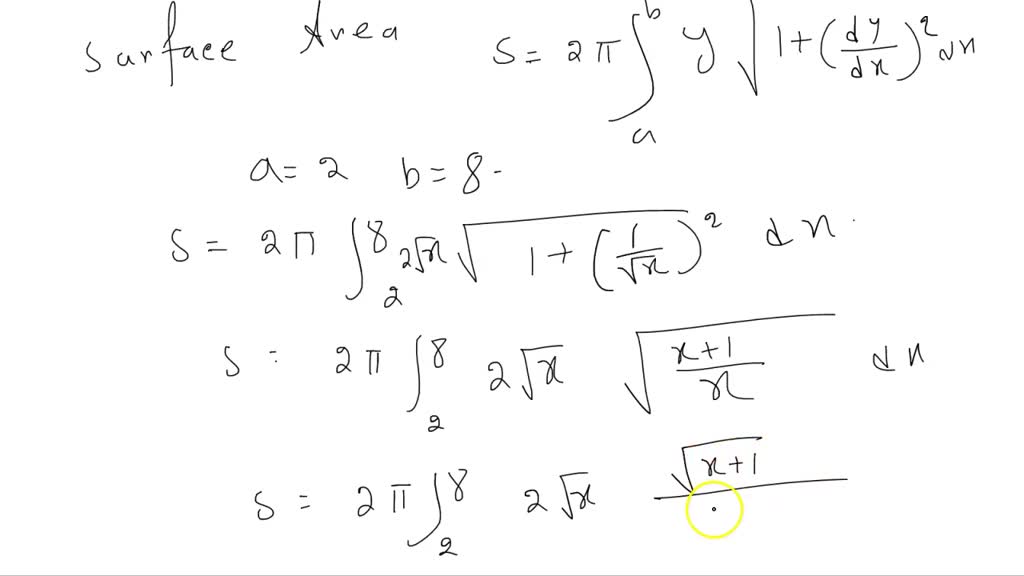 Surface Area S = 2π ∫_a^b y √(1+(dy/dx)^2) dx
a = 2 b = 8.
S = 2π ∫_2^8 2√x √(1+(1/√x)^2) dx
S = 2π ∫_2^8 2√x √((x+1)/x) dx
S = 2π ∫_2^8 2√x √(x+1)/